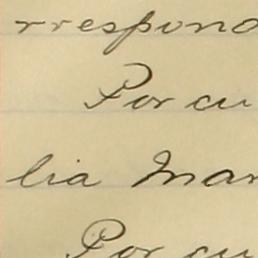 rrespond
Por cu
lia Mar
Por cu